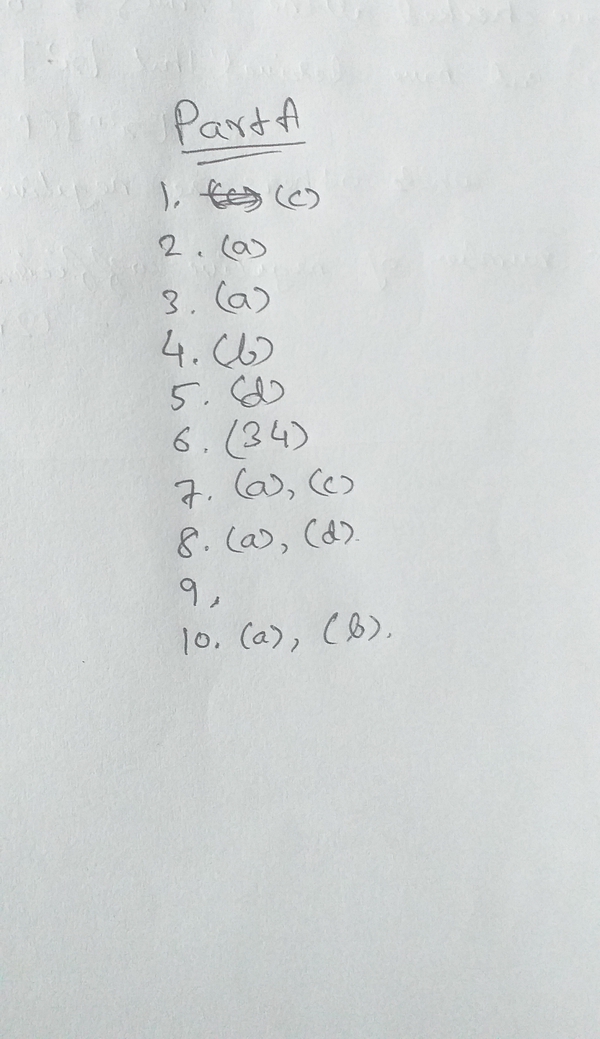 Part A
1. (c)
2. (a)
3. (a)
4. (b)
5. (d)
6. (34)
7. (a), (c)
8. (a), (d).
9.
10. (a), (b).